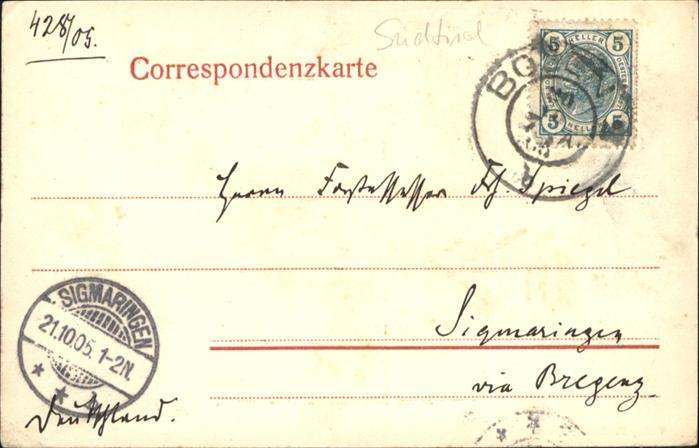 428/05.
Südtirol
Correspondenzkarte
5 HELLER 5
5 HELLER 5
BO
Herrn Forstassessor Frh. Spiegel
SIGMARINGEN
21.10.05. 1-2N.
Sigmaringen
via Bregenz.
Deutschland.